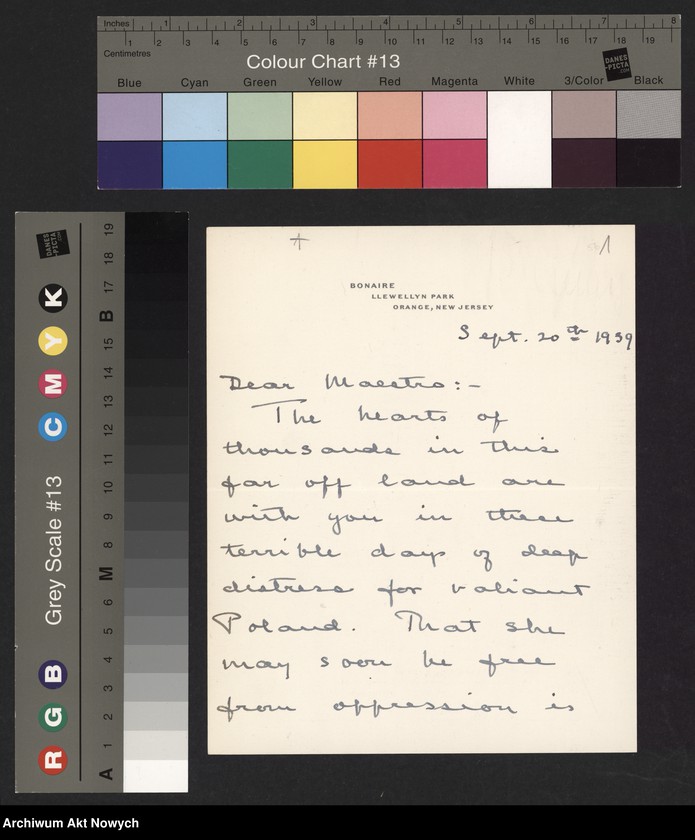 Inches 1 2 3 4 5 6 7 8
Centimetres 1 2 3 4 5 6 7 8 9 10 11 12 13 14 15 16 17 18 19
Colour Chart #13
DANES
-PICTA
.COM
Blue Cyan Green Yellow Red Magenta White 3/Color Black
DANES
-PICTA
.COM
R G B Grey Scale #13 C M Y K
A 1 2 3 4 5 6 M 8 9 10 11 12 13 14 15 B 17 18 19
1
BONAIRE
LLEWELLYN PARK
ORANGE, NEW JERSEY
Sept. 20th 1939
Dear Maestro:-
The hearts of
thousands in this
far off land are
with you in these
terrible days of deep
distress for valiant
Poland. That she
may soon be free
from oppression is
Archiwum Akt Nowych